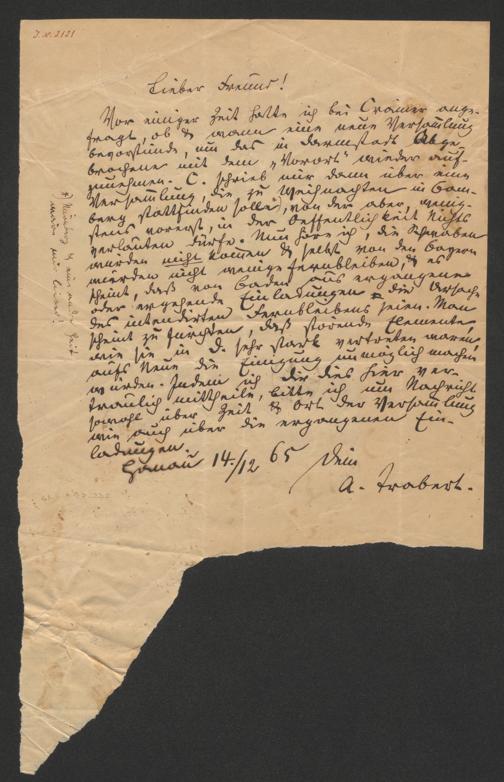 J. N. 2121
Lieber Freund!
Vor einiger Zeit hatte ich bei Crämer ange-
fragt, ob & wann eine neue Versammlung
bevorstünde, um das in Darmstadt Abge-
brochene mit dem „Vorort“ wieder auf-
zunehmen. C. schrieb mir dann über eine
Versammlung die zu Weihnachten in Bam-
berg stattfinden solle, von der aber wenig-
stens vorerst, in der Oeffentlichkeit Nichts
verlauten dürfe. Nun höre ich, die Schwaben
würden nicht kommen & selbst von den Bayern
würden nicht wenige fernbleiben, & es
scheint, daß von Baden aus ergangene
oder ergehende Einladungen die Ursache
des intendirten Fernbleibens seien. Man
scheint zu fürchten, daß störende Elemente,
wie sie in D. sehr stark vertreten waren,
aufs Neue die Einigung unmöglich machen
würden. Indem ich Dir dies hier ver-
traulich mittheile, bitte ich um Nachricht
sowohl über Zeit & Ort der Versammlung
wie auch über die ergangenen Ein-
ladungen.
Hanau 14./12 65 Dein
A. Trabert.
Nürnberg & eine andre Zeit
wäre mir lieber.